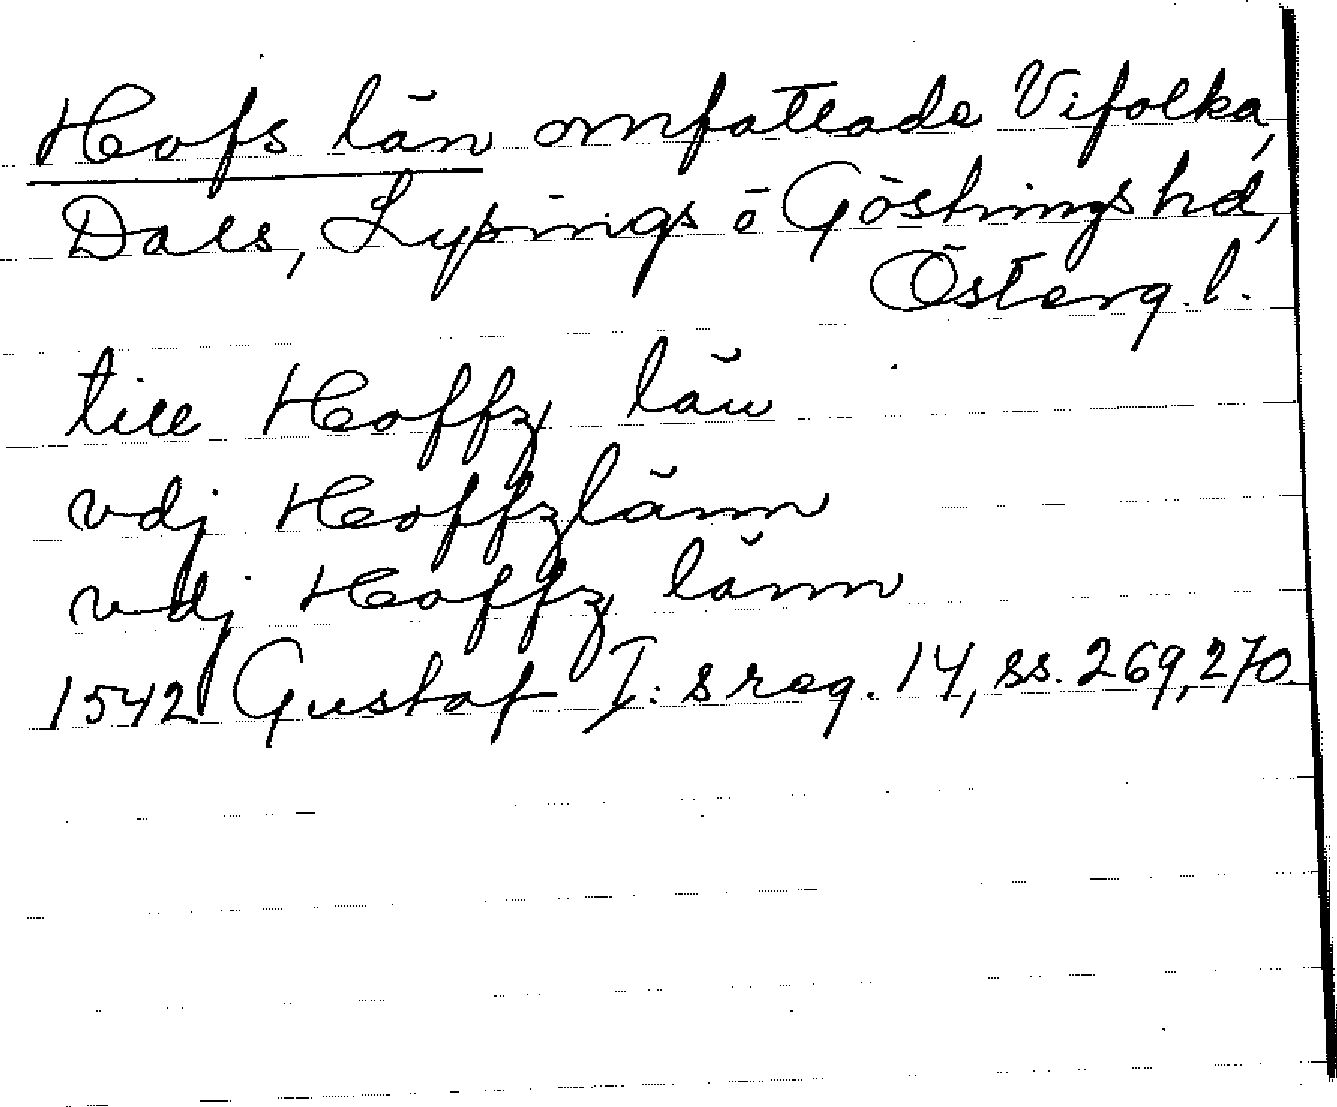 Hofs län omfattade Vifolka,
Dals, Lysings o Göstrings hd,
Österg. l.
till Hoffz län
vdj Hoffzlänn
vdj Hoffz länn
1542 Gustaf I:s reg. 14, ss. 269, 270